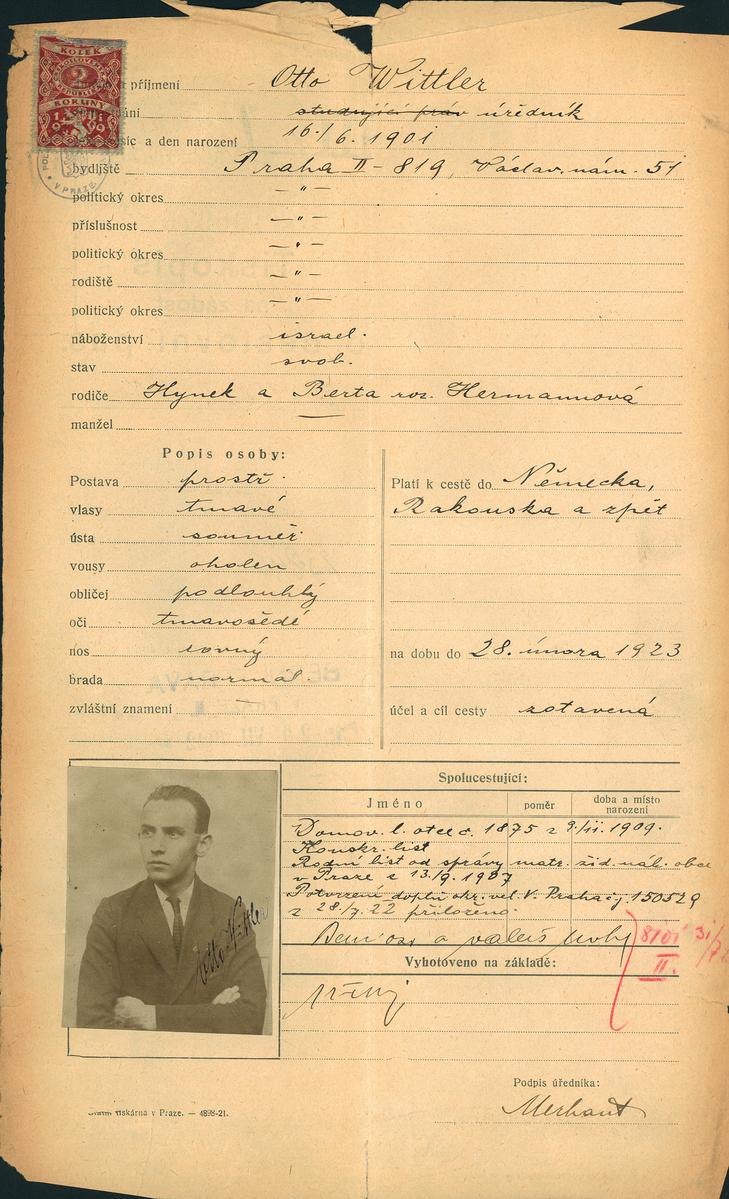 KOLEK
2
KORUNY
1919
V PRAZE
příjmení Otto Wittler
studující práv úředník
a den narození 16./6. 1901
bydliště Praha II - 819, Václav. nám. 51
politický okres — " —
příslušnost — " —
politický okres — " —
rodiště — " —
politický okres — " —
náboženství israel.
stav svob.
rodiče Hynek a Berta roz. Hermannová
manžel
Popis osoby:
Postava prostř.
vlasy tmavé
ústa souměr
vousy oholen
obličej podlouhlý
oči tmavošedé
nos rovný
brada normál.
zvláštní znamení —
Platí k cestě do Německa,
Rakouska a zpět
na dobu do 28. února 1923
účel a cíl cesty zotavená
Otto Wittler
Spolucestující:
Jméno poměr doba a místo narození
Domov. l. otce č. 1875 z 9./11. 1909.
Konskr. list
Rodní list od správy matr. žid. náb. obce
v Praze z 13./9. 1907
Potvrzení doplň. okr. vel. V. Praha čj 150529
z 28./7. 22 přiloženo.
II.
Vyhotoveno na základě:
Podpis úředníka:
tiskárna v Praze. — 4898-21.